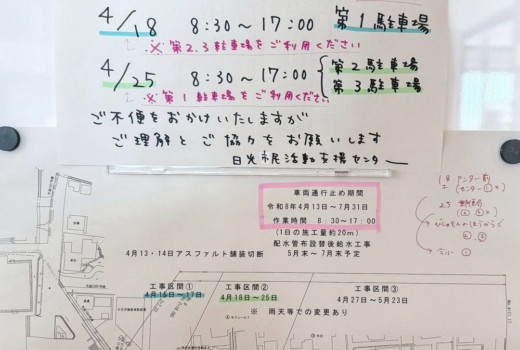 4/18 8:30~17:00 第1駐車場
※第2.3駐車場をご利用ください
4/25 8:30~17:00 第2駐車場
第3駐車場
※第1駐車場をご利用ください
ご不便をおかけいたしますが
ご理解とご協力をお願いします
日光市民活動支援センター
車両通行止め期間
令和8年4月13日~7月31日
作業時間 8:30~17:00
(1日の施工量約20m)
配水管布設替後給水工事
5月末~7月末予定
4月13・14日アスファルト舗装切断
工事区間①
4月15日~17日
工事区間②
4月18日~25日
工事区間③
4月27日~5月23日
※ 雨天等での変更あり